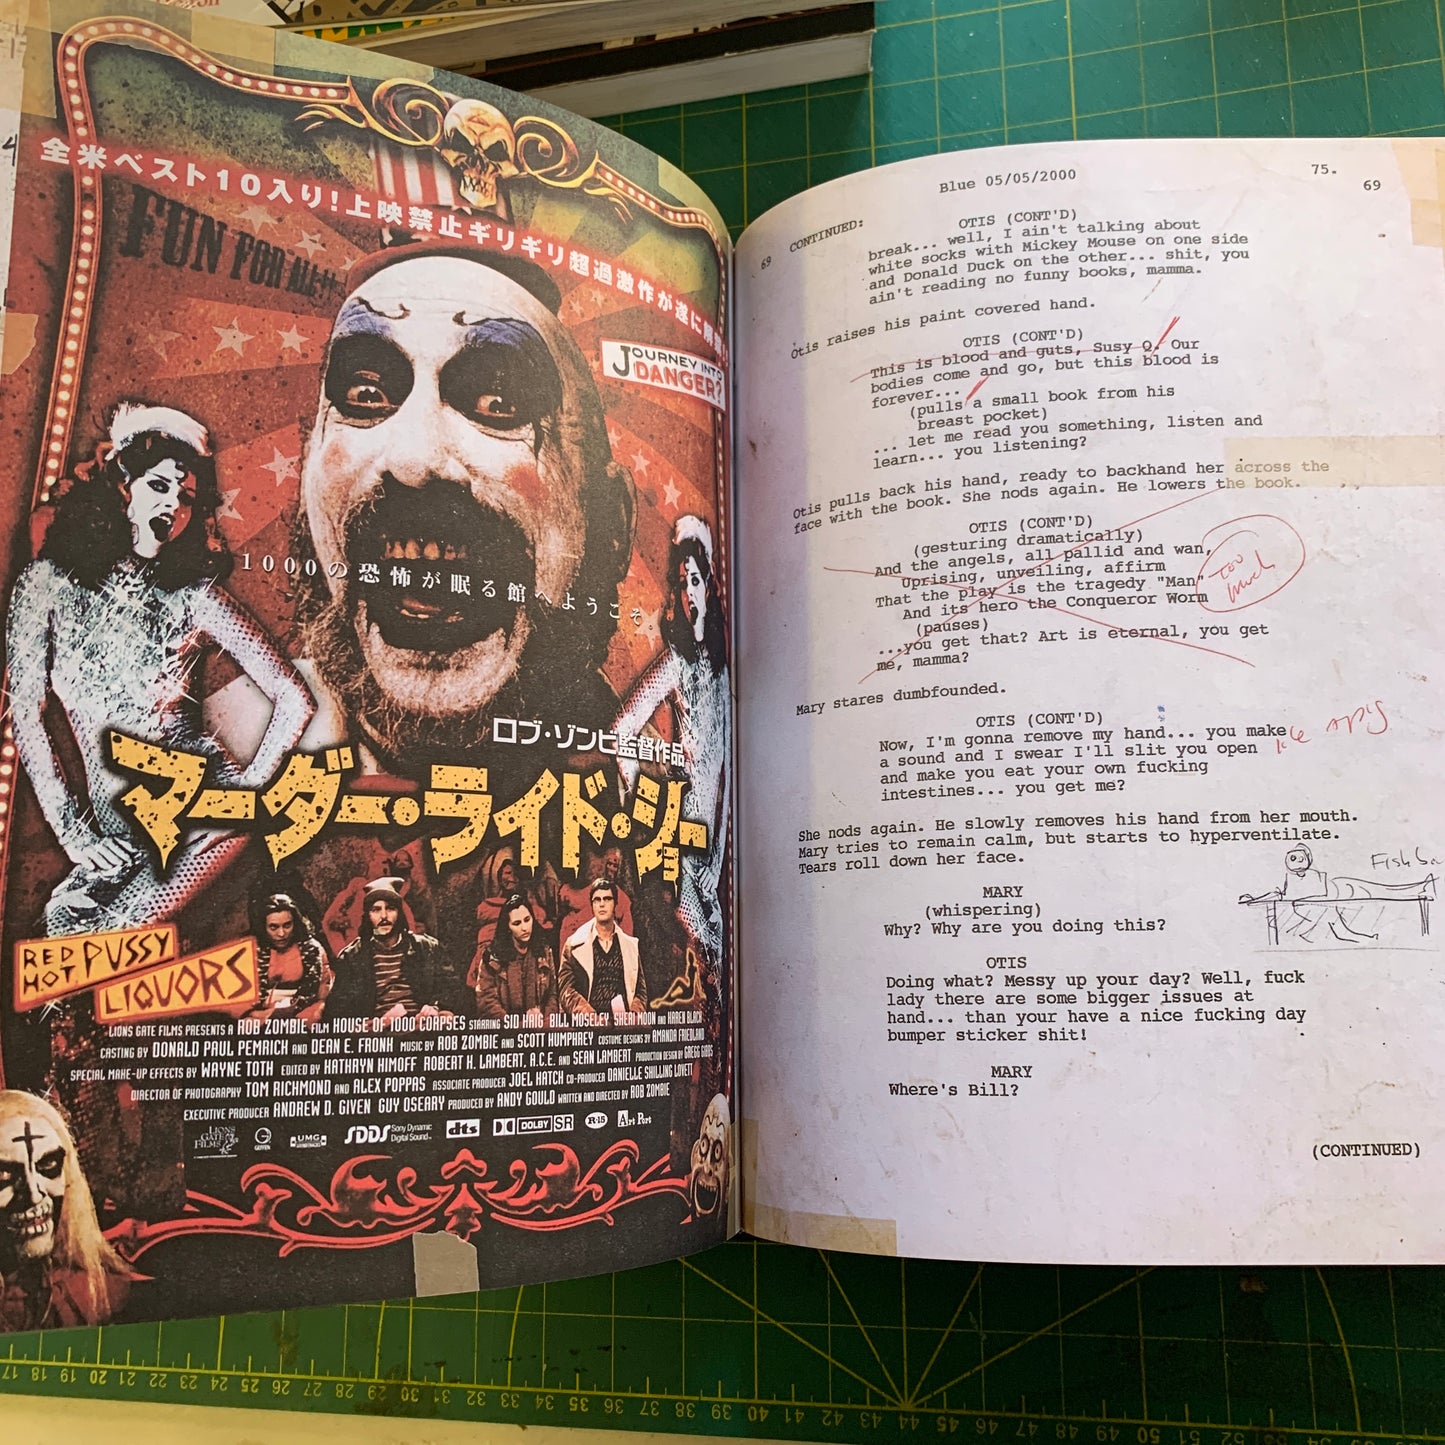 全米ベスト10入り!上映禁止ギリギリ超過激作が遂に解
FUN FOR ALL!!
JOURNEY INTO
DANGER?
1000の恐怖が眠る館へようこそ。
ロブ・ゾンビ監督作品
マーダー・ライド・ショー
RED HOT PUSSY LIQUORS
LIONS GATE FILMS PRESENTS A ROB ZOMBIE FILM HOUSE OF 1000 CORPSES STARRING SID HAIG BILL MOSELEY SHERI MOON AND KAREN BLACK
CASTING BY DONALD PAUL PEMRICK AND DEAN E. FRONK MUSIC BY ROB ZOMBIE AND SCOTT HUMPHREY COSTUME DESIGNS BY AMANDA FRIEDLAND
SPECIAL MAKE-UP EFFECTS BY WAYNE TOTH EDITED BY KATHRYN HIMOFF ROBERT K. LAMBERT, A.C.E. AND SEAN LAMBERT PRODUCTION DESIGN BY GREGG GIBBS
DIRECTOR OF PHOTOGRAPHY TOM RICHMOND AND ALEX POPPAS ASSOCIATE PRODUCER JOEL HATCH CO-PRODUCER DANIELLE SHILLING LOVETT
EXECUTIVE PRODUCER ANDREW D. GIVEN GUY OSEARY PRODUCED BY ANDY GOULD WRITTEN AND DIRECTED BY ROB ZOMBIE
LIONS GATE FILMS UMG SDDS Sony Dynamic Digital Sound dts DOLBY SR R-15 Art Port
Blue 05/05/2000 75.
69 CONTINUED: 69
OTIS (CONT'D)
break... well, I ain't talking about
white socks with Mickey Mouse on one side
and Donald Duck on the other... shit, you
ain't reading no funny books, mamma.
Otis raises his paint covered hand.
OTIS (CONT'D)
This is blood and guts, Susy Q. Our
bodies come and go, but this blood is
forever...
(pulls a small book from his
breast pocket)
... let me read you something, listen and
learn... you listening?
Otis pulls back his hand, ready to backhand her across the
face with the book. She nods again. He lowers the book.
OTIS (CONT'D)
(gesturing dramatically)
And the angels, all pallid and wan,
Uprising, unveiling, affirm
That the play is the tragedy "Man"
And its hero the Conqueror Worm
too
much
(pauses)
...you get that? Art is eternal, you get
me, mamma?
Mary stares dumbfounded.
OTIS (CONT'D)
Now, I'm gonna remove my hand... you make
a sound and I swear I'll slit you open
like a pig
and make you eat your own fucking
intestines... you get me?
She nods again. He slowly removes his hand from her mouth.
Mary tries to remain calm, but starts to hyperventilate.
Tears roll down her face.
MARY
(whispering)
Why? Why are you doing this?
Fish
OTIS
Doing what? Messy up your day? Well, fuck
lady there are some bigger issues at
hand... than your have a nice fucking day
bumper sticker shit!
MARY
Where's Bill?
(CONTINUED)
17 18 19 20 21 22 23 24 25 26 27 28 29 30 31 32 33 34 35 36 37 38 39 40 41 42 43 44 45 46 47 48 49 50 51 52 53 54